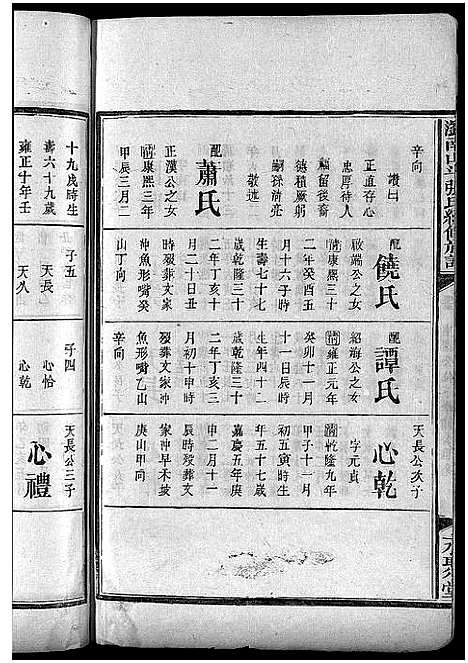 辛向
讚曰
正直存心
忠厚待人
福留後裔
德積厥躬
嗣孫前亮
敬述
配蕭氏
正漢公之女
清康熙三年
甲辰三月二
配饒氏
啟端公之女
清康熙三十
二年癸酉五
月十六子時
生壽七十七
歲乾隆三十
二年丁亥十
二月二十日丑
時歿葬文家
沖魚形嘴癸
山丁向
配譚氏
紹海公之女
清雍正元年
癸卯十一月
十一日辰時
生年四十二
歲乾隆三十
二年丁亥三
月初十申時
歿葬文家沖
魚形嘴乙山
辛向
天長公次子
心乾
字元貞
清乾隆九年
甲子十一月
初五寅時生
年五十七歲
嘉慶五年庚
申二月十一
日歿葬文
家沖早禾坡
庚山甲向
十九戌時生
壽六十九歲
雍正十年壬
子五
天長
天久
子四
心恰
心乾
天長公三子
心禮